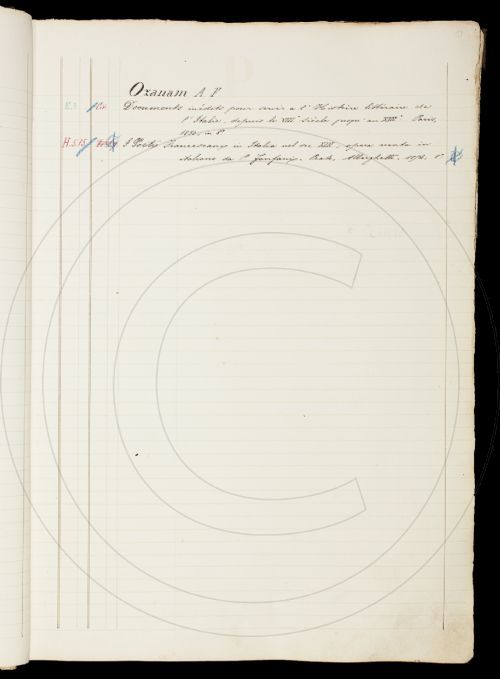 Ozanam A F
Documents inédits pour servir a l'Histoire littéraire de
l'Italie, depuis le VIII siècle jusqu'au XIII. Paris,
1850, in 8°
H.5.15 I Poeti Francescani in Italia nel sec XIII, opera recata in
italiano da P. Fanfani. Prato, Alberghetti. 8°